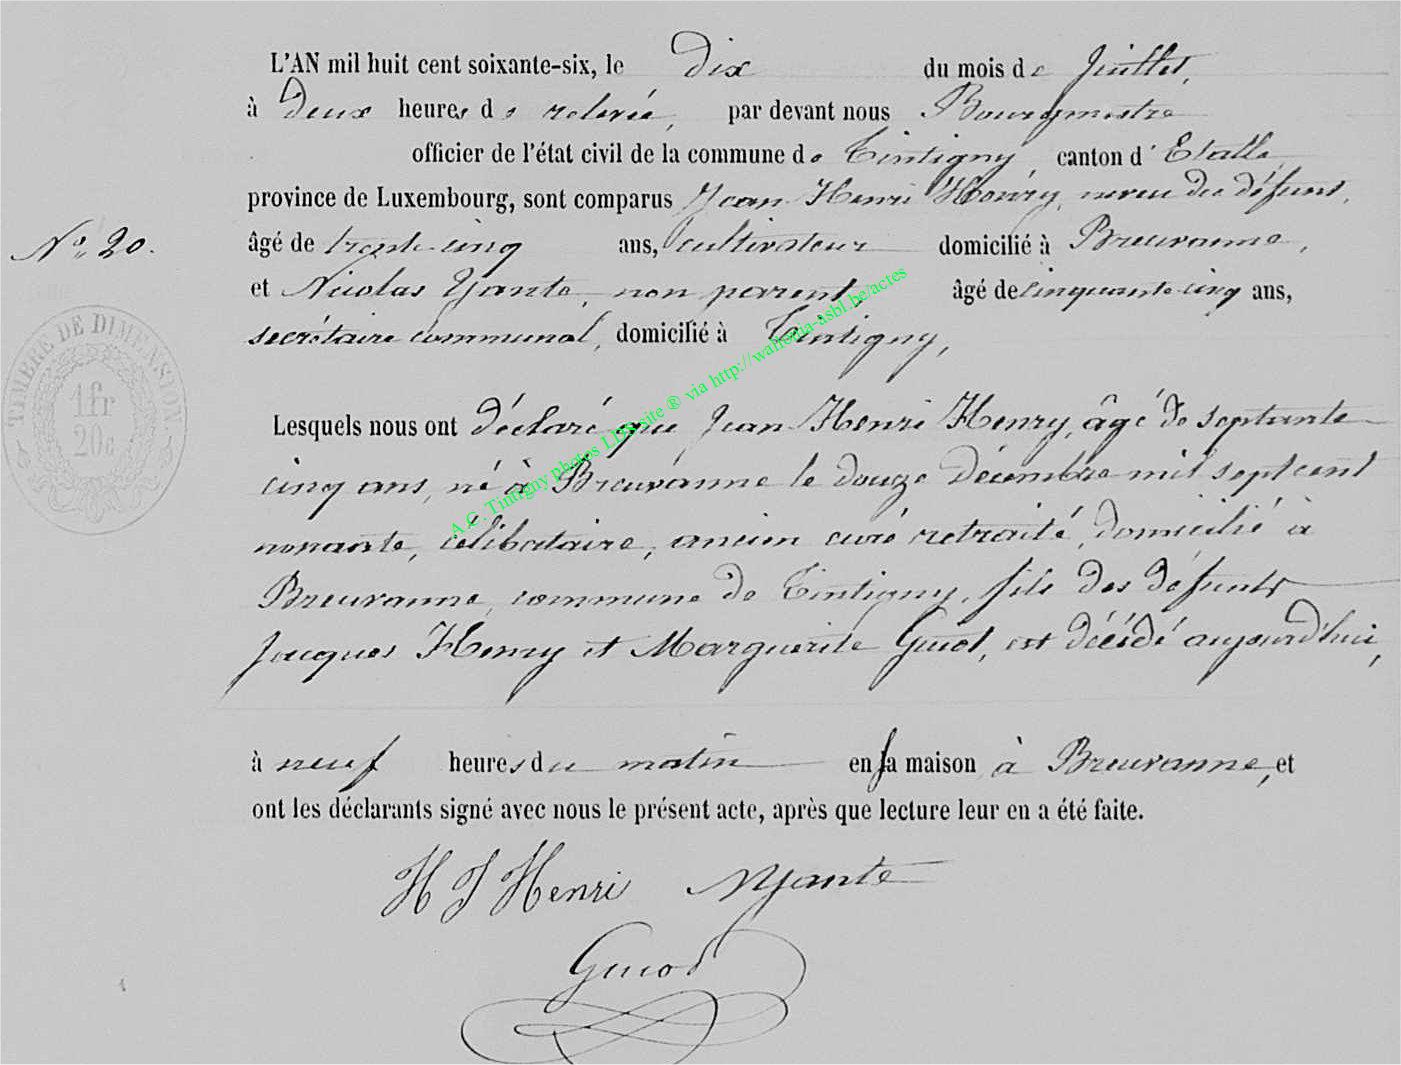 L'AN mil huit cent soixante-six, le dix du mois de Juillet,
à deux heures de relevée, par devant nous Bourgmestre
officier de l'état civil de la commune de Tintigny, canton d'Etalle,
province de Luxembourg, sont comparus Jean Henri Henry, neveu du défunt,
N° 20.
âgé de trente-cinq ans, cultivateur domicilié à Breuvanne,
et Nicolas Yante, non parent, âgé de cinquante cinq ans,
secrétaire communal, domicilié à Tintigny,
TIMBRE DE DIMENSION.
1fr
20c
Lesquels nous ont déclaré que Jean Henri Henry, âgé de septante
cinq ans, né à Breuvanne le douze Décembre mil sept cent
nonante, célibataire, ancien curé retraité, domicilié à
Breuvanne, commune de Tintigny, fils des défunts
Jacques Henry et Marguerite Guiot, est décédé aujourd'hui,
à neuf heures du matin en sa maison à Breuvanne, et
ont les déclarants signé avec nous le présent acte, après que lecture leur en a été faite.
H J Henri NYante
Guiot
A.C. Tintigny photos LDS site ® via http://wallonia-asbl.be/actes